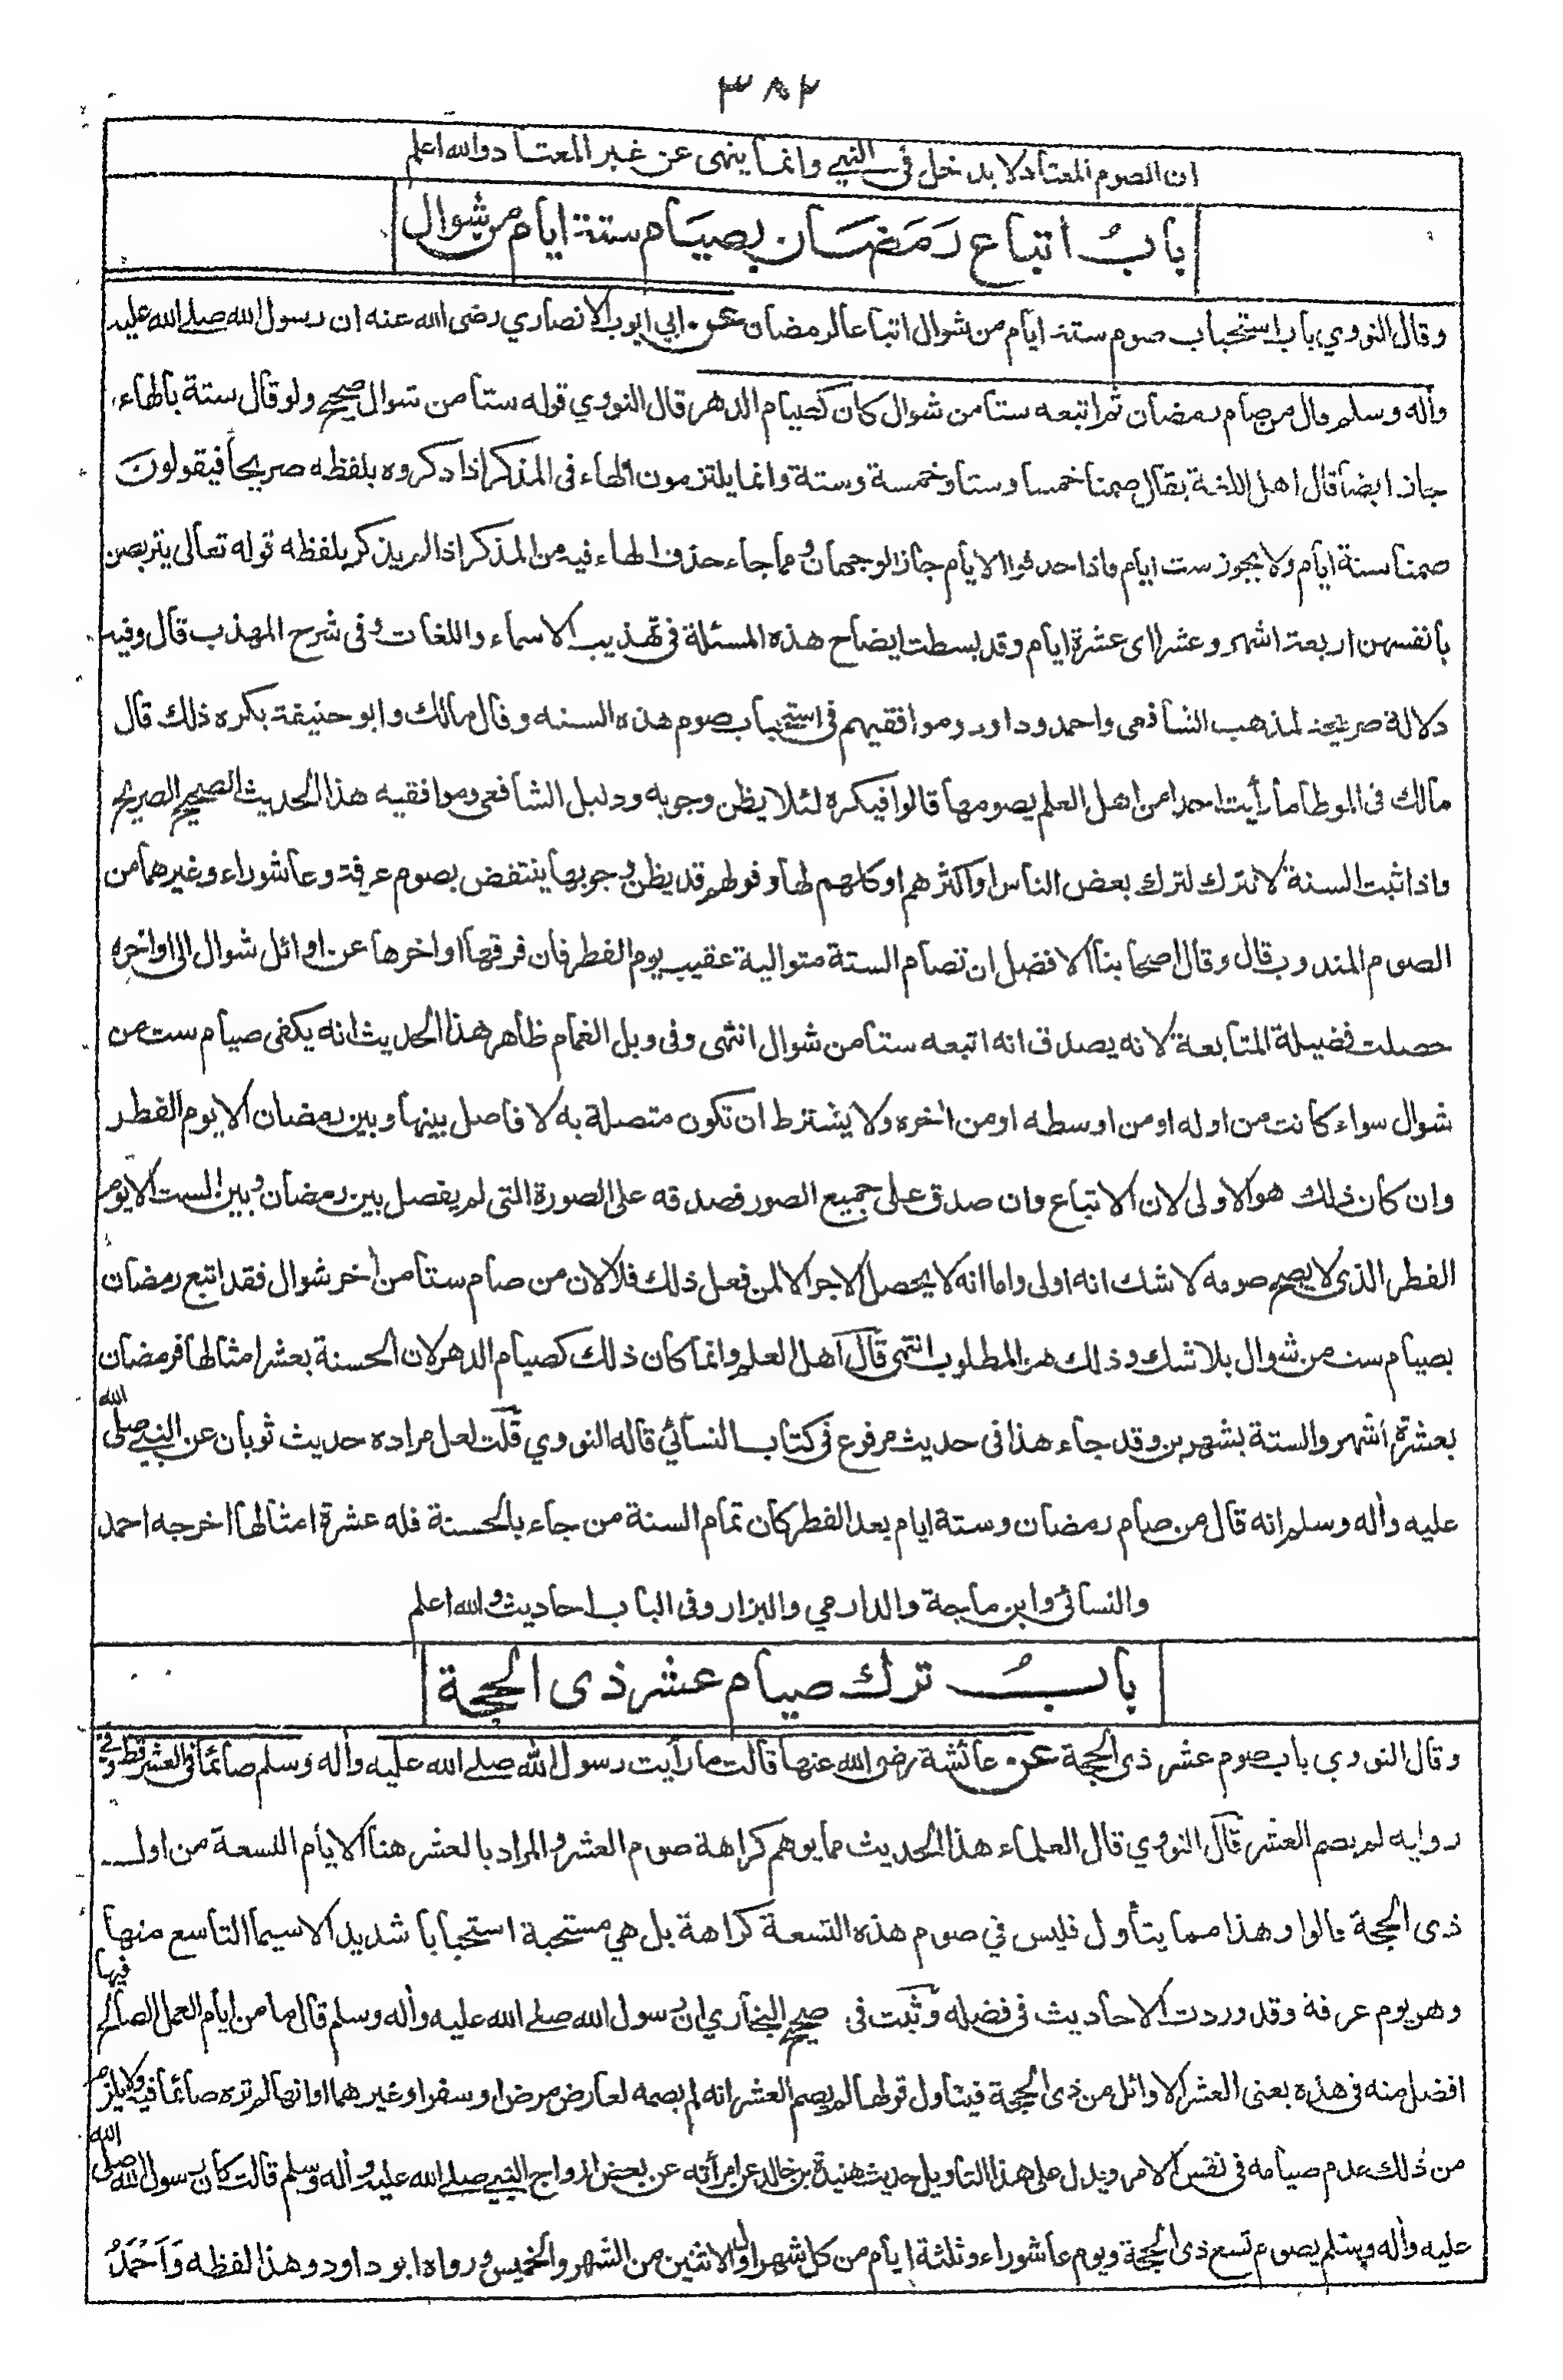 ٣٨٢
ان الصوم المعتاد لا يدخل فى النهي وانما ينهى عن غير المعتاد والله اعلم
باب اتباع رمضان بصيام ستة ايام من شوال
وقال النووي باب استحباب صوم ستة ايام من شوال اتباعا لرمضان عن ابي ايوب الانصاري رضى الله عنه ان رسول الله صلے الله عليه
وأله وسلم قال من صام رمضان ثم اتبعه ستا من شوال كان كصيام الدهر قال النووي قوله ستا من شوال صحيح ولو قال ستة بالهاء
جاز ايضا قال اهل اللغة يقال صمنا خمسا وستا وخمسة وستة وانما يلتزمون الهاء فى المذكر اذا ذكروه بلفظه صريحا فيقولون
صمنا ستة ايام ولا يجوز ست ايام فاذا حذفوا الايام جاز الوجهان ومما جاء حذف الهاء فيه من المذكر اذا لم يذكر بلفظه قوله تعالى يتربصن
بانفسهن اربعة اشهر وعشرا اى عشرة ايام وقد بسطت ايضاح هذه المسئلة فى تهذيب الاسماء واللغات وفى شرح المهذب قال وفيه
دلالة صريحة لمذهب الشافعى واحمد وداود وموافقيهم فى استحباب صوم هذه الستة وقال مالك وابو حنيفة يكره ذلك قال
مالك فى الموطا ما رأيت احدا من اهل العلم يصومها قالوا فيكره لئلا يظن وجوبه ودليل الشافعى وموافقيه هذا الحديث الصحيح الصريح
واذا ثبت السنة لا تترك لترك بعض الناس او اكثرهم او كلهم لها وقولهم قد يظن وجوبها ينتقض بصوم عرفة وعاشوراء وغيرهما من
الصوم المندوب قال وقال اصحابنا الافضل ان تصام الستة متوالية عقيب يوم الفطر فان فرقها او اخرها عن اوائل شوال الى اواخره
حصلت فضيلة المتابعة لانه يصدق انه اتبعه ستا من شوال انتهى وفى وبل الغمام ظاهر هذا الحديث انه يكفى صيام ست من
شوال سواء كانت من اوله او من اوسطه او من أخره ولا يشترط ان تكون متصلة به لا فاصل بينها وبين رمضان الا يوم الفطر
وان كان ذلك هو الاولى لان الاتباع وان صدق على جميع الصور فصدقه على الصورة التى لم يفصل بين رمضان وبين الست الا يوم
الفطر الذى لا يصح صومه لا شك انه اولى واما انه لا يحصل الاجر الا لمن فعل ذلك فلا لان من صام ستا من أخر شوال فقد اتبع رمضان
بصيام ست من شوال بلا شك وذلك هو المطلوب انتهى قال اهل العلم وانما كان ذلك كصيام الدهر لان الحسنة بعشر امثالها فرمضان
بعشرة أشهر والستة بشهرين وقد جاء هذا فى حديث مرفوع فى كتاب النسائي قاله النووي قلت لعل مراده حديث ثوبان عن النبي صلى الله
عليه وأله وسلم انه قال من صام رمضان وستة ايام بعد الفطر كان تمام السنة من جاء بالحسنة فله عشرة امثالها اخرجه احمد
والنسائى وابن ماجة والدارمي والبزار وفى الباب احاديث والله اعلم
باب ترك صيام عشر ذى الحجة
وقال النووي باب صوم عشر ذى الحجة عن عائشة رضى الله عنها قالت ما رأيت رسول الله صلے الله عليه وأله وسلم صائما فى العشر قط وفي
رواية لم يصم العشر قال النووي قال العلماء هذا الحديث مما يوهم كراهة صوم العشر والمراد بالعشر هنا الايام التسعة من اول
ذى الحجة قالوا وهذا مما يتأول فليس في صوم هذه التسعة كراهة بل هي مستحبة استحبابا شديدا لاسيما التاسع منها
وهو يوم عرفة وقد وردت الاحاديث فى فضله وثبت فى صحيح البخاري ان رسول الله صلے الله عليه وأله وسلم قال ما من ايام العمل الصالح فيها
افضل منه فى هذه يعنى العشر الاوائل من ذى الحجة فيتاول قولها لم يصم العشر انه لم يصمه لعارض مرض او سفر او غيرهما او انها لم تره صائما فيه ولا يلزم
من ذلك عدم صيامه فى نفس الامر ويدل على هذا التاويل حديث هنيدة بن خالد عن امرأته عن بعض ازواج النبي صلے الله عليه وأله وسلم قالت كان رسول الله صلى الله
عليه وأله وسلم يصوم تسع ذى الحجة ويوم عاشوراء وثلثة ايام من كل شهر اول الاثنين من الشهر والخميس ورواه ابو داود وهذا لفظه وَاَحْمَدُ